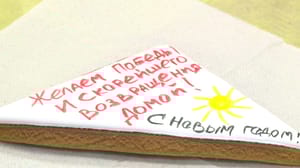 ЖЕЛАЕМ ПОБЕДЫ
И СКОРЕЙШЕГО
ВОЗВРАЩЕНИЯ
ДОМОЙ!
С НОВЫМ ГОДОМ!